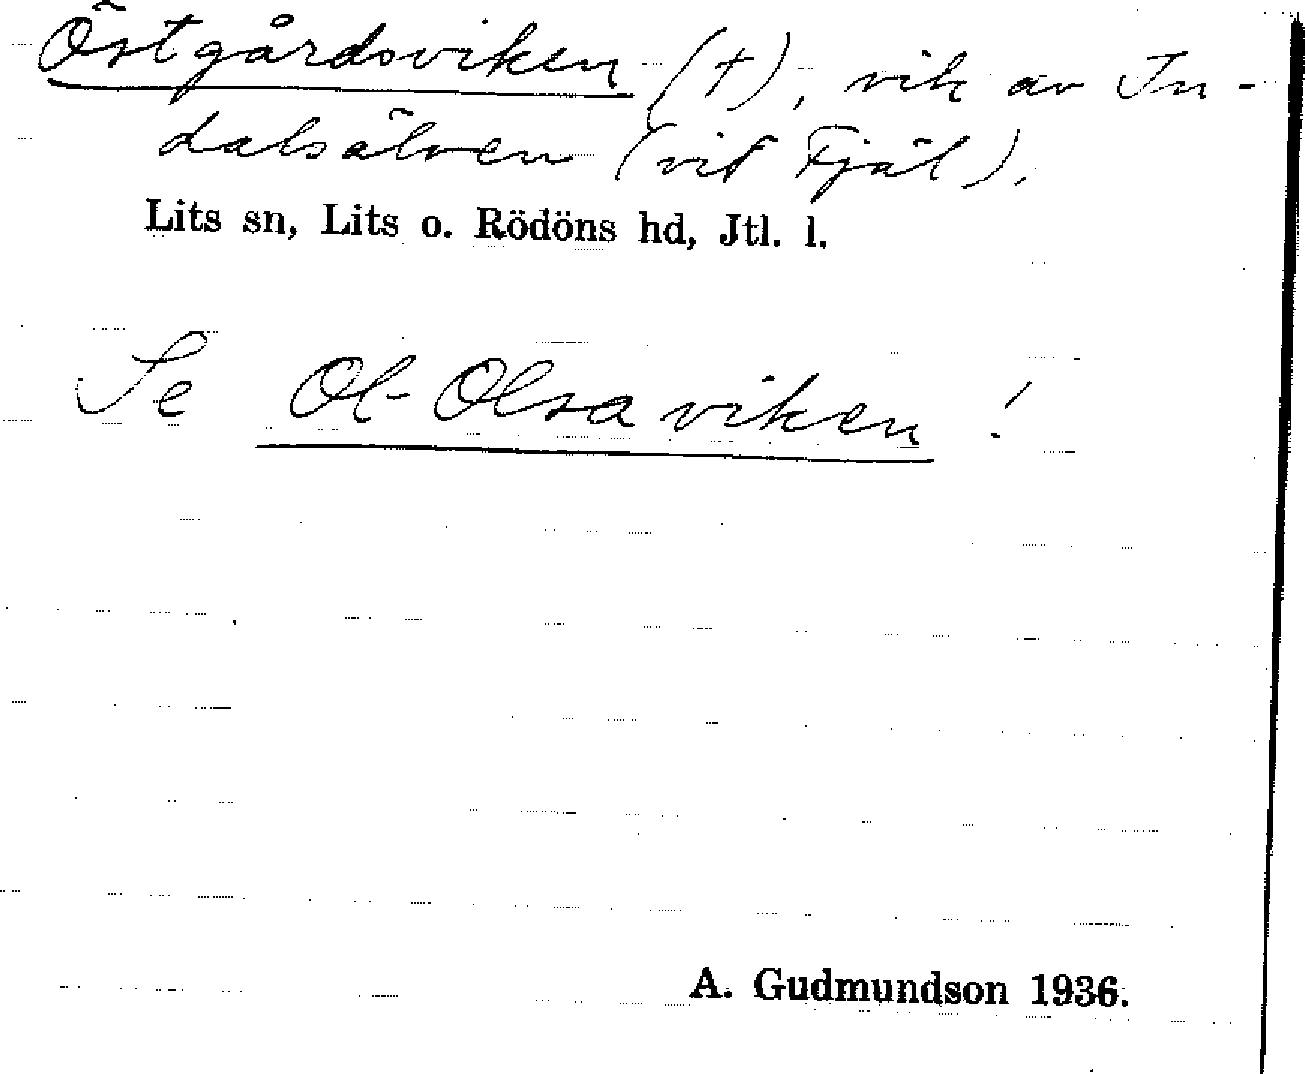 Östgårdsviken (†), vik av In-
dalsälven (vid Fjäl).
Lits sn, Lits o. Rödöns hd, Jtl. l.
Se Ol-Olsaviken!
A. Gudmundson 1936.